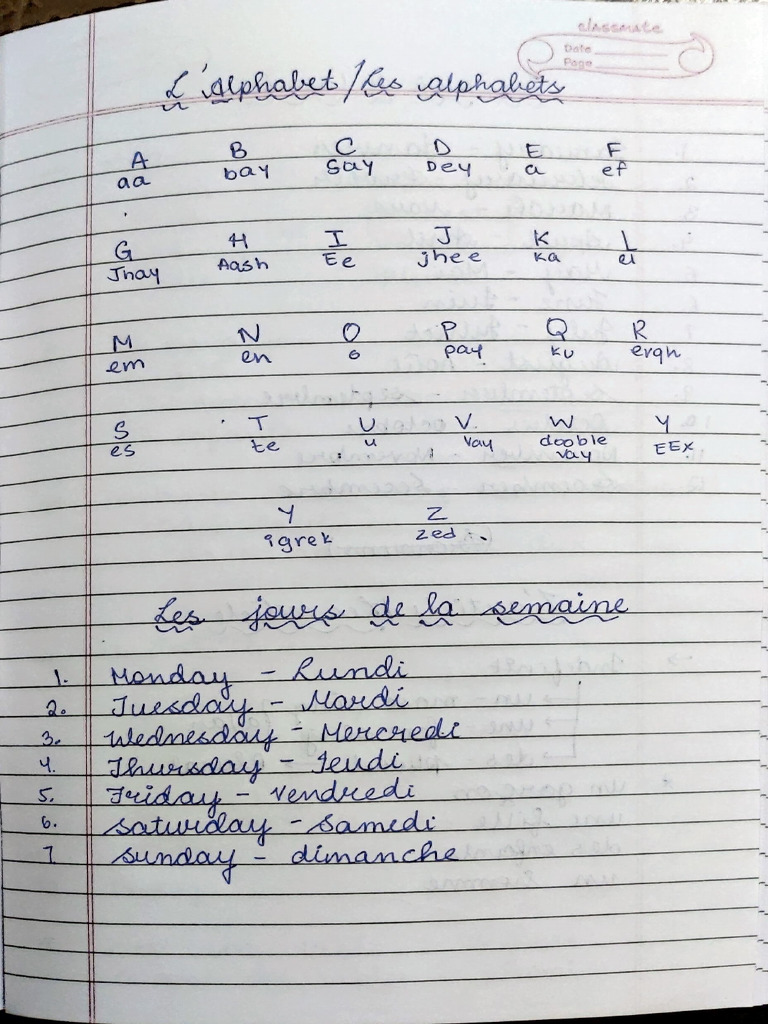 classmate
Date
Page
L'Alphabet / Les alphabets
A B C D E F
aa bay say Dey a ef
G H I J K L
Jhay Aash Ee jhee ka el
M N O P Q R
em en o pay ku ergh
S T U V W Y
es te u vay dooble vay EEx
Y Z
igrek zed
Les jours de la semaine
1. Monday - Lundi
2. Tuesday - Mardi
3. Wednesday - Mercredi
4. Thursday - Jeudi
5. Friday - Vendredi
6. Saturday - Samedi
7 Sunday - dimanche